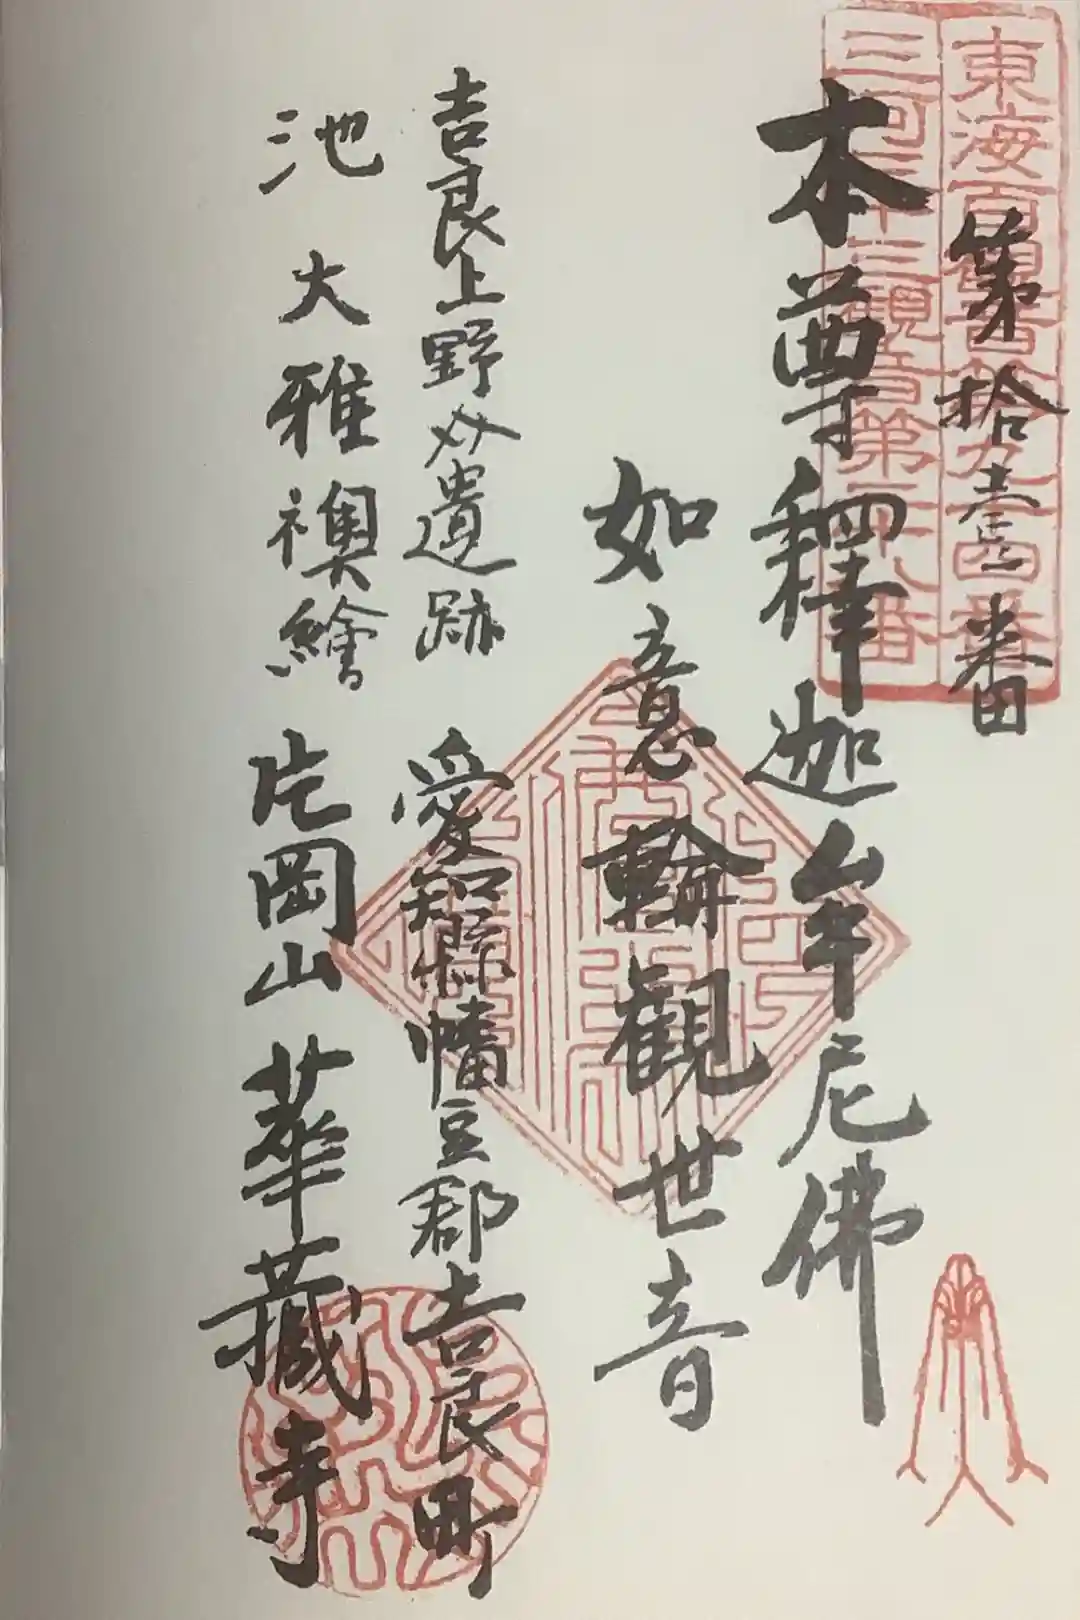 東海百観音第九十四番
三河三十三観音第二十八番
第拾壹番
本尊釋迦牟尼佛
如意輪觀世音
吉良上野介遺跡 愛知縣幡豆郡吉良町
池大雅襖繪 片岡山華藏寺